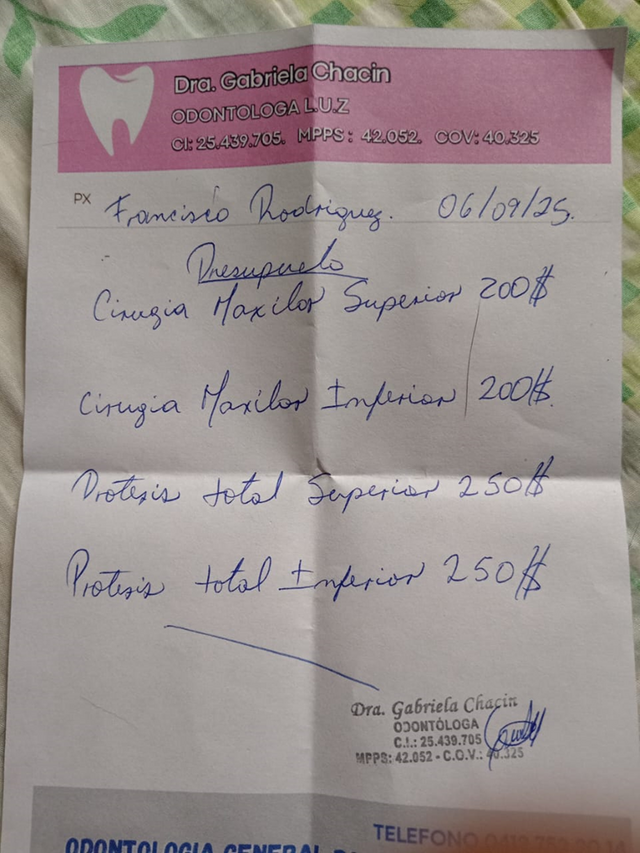 Dra. Gabriela Chacin
ODONTOLOGA L.U.Z
CI: 25.439.705. MPPS: 42.052. COV: 40.325
PX Francisco Rodriguez. 06/09/25.
Presupuesto
Cirugia Maxilar Superior 200$
Cirugia Maxilar Inferior 200$.
Protesis total Superior 250$
Protesis total Inferior 250$
Dra. Gabriela Chacin
ODONTÓLOGA
C.I.: 25.439.705
MPPS: 42.052 - C.O.V.: 40.325
TELEFONO
ODONTOLOGIA GENERAL